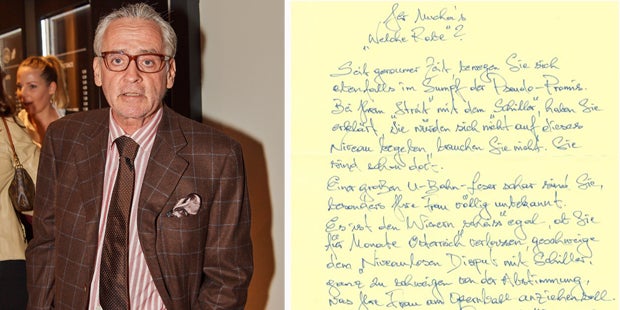 Mucha's
"Welche Robe"?
Seit geraumer Zeit bewegen Sie sich
ebenfalls im Sumpf der Pseudo-Promis.
Bei Ihrem "Streit" mit dem Schiller, haben Sie
erklärt, "Sie würden sich nicht auf dieses
Niveau begeben, brauchen Sie nicht. Sie
sind schon dort.
Einer großen U-Bahn-leser schar sind Sie,
besonders Ihre Frau völlig unbekannt.
Es ist den Wienern "scheiss" egal, ob Sie
für Monate Österreich verlassen, geschweige
dem "Niveaulosen Disput" mit Schiller,
ganz zu schweigen von der Abstimmung,
was Ihre Frau am Opernball anziehen soll.